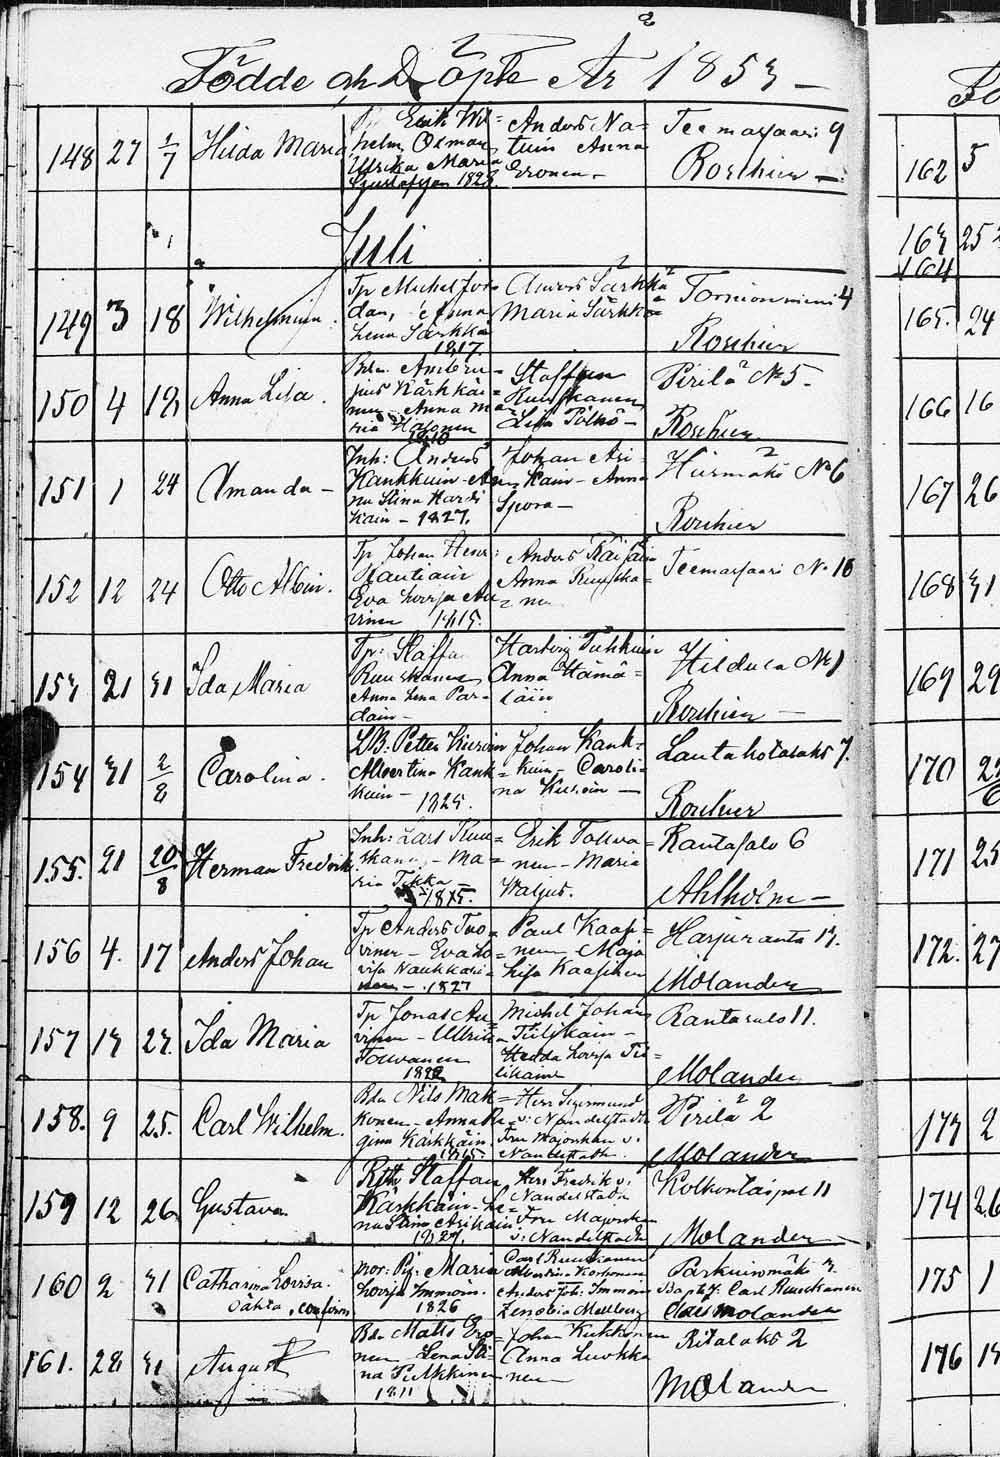 Födde och Döpte År 1853
148 27 2/7 Hilda Maria Erik Wil=
helm Öman
Ulrika Maria
Gustafsson 1828. Anders Na=
tuin Anna
Eronen Teemassaari 9
Roschier
Juli
149 3 18 Wilhelmina Tp Michel Jor=
dan, Anna
Lena Särkkä
1817. Anders Särkkä
Maria Särkkä Tornioniemi 4
Roschier
150 4 18 Anna Lisa Bdn Ambro=
sius Kärkkäi=
nen Anna Ma=
ria Halonen
1810 Staffan
Ruuskanen
Lisa Pölkö Pirilä No 5.
Roschier
151 1 24 Amanda Inh: Anders
Kankkuin An
na Stina Hardi
kain - 1827. Johan Asi=
kain - Anna
Spora Hiismäki No 6
Roschier
152 12 24 Otto Albin. Tp Johan Henr:
Rautiain
Eva Lovisa Au
vinen 1815. Anders
Anna Ruuska=
nen Teemassaari No 10
153 21 31 Ida Maria Tp: Staffan
Ruuskanen
Anna Lena Par=
dain Hartvig Tuhkuin
Anna Hämä=
läin Hildula No 1
Roschier
154 31 2/8 Carolina. LB: Petter Kursoin
Albertina Kank=
kuin - 1825. Johan Kank=
kuin - Caroli=
na Kursoin Lautakotalaks 7.
Roschier
155. 21 20/8 Herman Fredrik Inh: Lars Ruu=
skanen - Ma=
ria Tikka
1815. Erik Tolwa=
nen - Maria
Waljus. Rantasalo 6
Ahlholm
156 4. 17 Anders Johan Tp Anders Tuo=
vinen - Eva Lo=
visa Naukkari=
nen - 1827 Paul Kaasi=
nen - Maja
Lisa Kaasinen Harjuranta 13.
Molander
157 13 23. Ida Maria Tp Jonas Au=
vinen - Ulrica
Tolwanen
1822 Michel Johan
Tiilikain -
Hedda Lovisa Tii=
likain Rantasalo 11.
Molander
158. 9 25. Carl Wilhelm. Bdn Nils Mak=
konen - Anna Re=
gina Kärkkäin
1815. Herr Sigismund
v: Nandelstadh
Fru Majorskan v:
Nandelstadh. Pirilä 2
Molander
159 12 26 Gustava Staffan
Kärkkäin - Le=
na Stina Asikain
1827. Herr Fredrik v:
Nandelstadh
Fru Majorskan
v: Nandelstadh Kolkontaipal 11
Molander
160 2 31 Catharina Lovisa.
oäkta, confirm Pig: Maria
Lovisa Immoin.
1826 Carl Ruuskanen
Albertina Korhonen
Anders Joh: Immoin
Zenobia Mellberg Parkuinmäki 3.
Bapt. f: Carl Ruuskanen
Claes Molander
161. 28 31 August Bdn Matts Ero=
nen Lena Sti=
na Pulkkinen
1811 Johan Kukkonen
Anna Luokka
nen Ritalaks 2
Molander
162 5
163 25
164
165. 24
166 16
167 26
168 31
169 29
170
171 25
172. 27
173 2
174 26
175 1
176 13